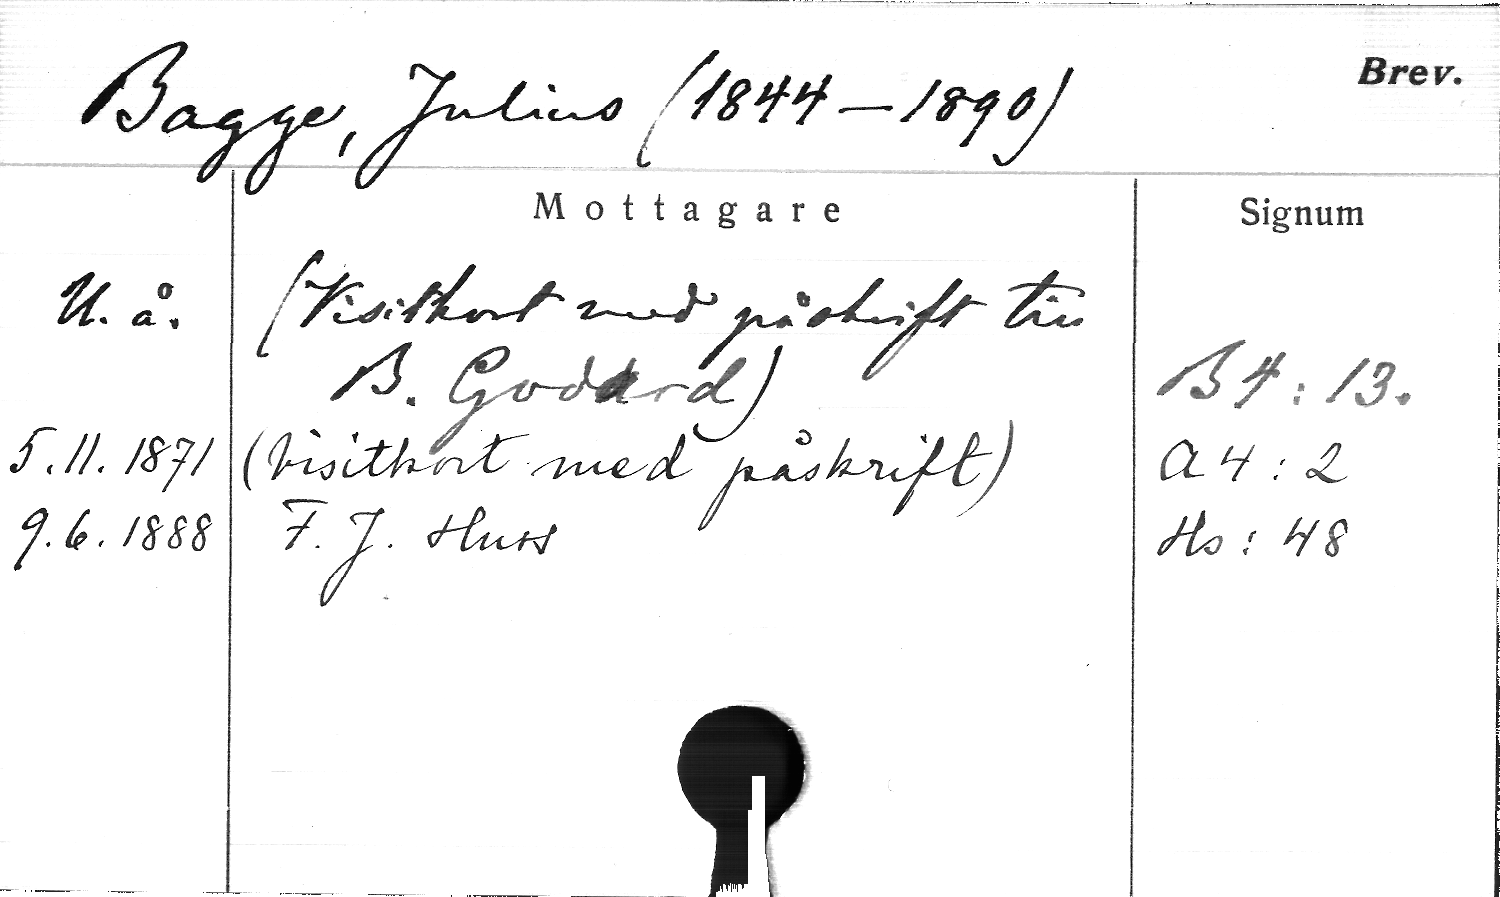 Bagge, Julius (1844–1890) Brev.
Mottagare Signum
U. å. (Visitkort med påskrift till
B. Goddard) B4:13.
5.11.1871 (Visitkort med påskrift) A4:2
9.6.1888 F. J. Huss Hs:48